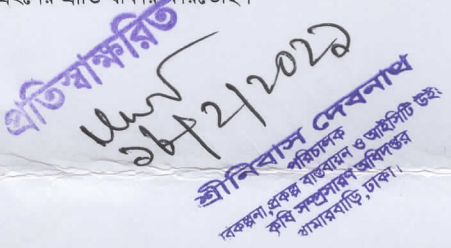 প্রতিস্বাক্ষরিত
শ্রীনিবাস দেবনাথ
পরিচালক
পরিকল্পনা, প্রকল্প বাস্তবায়ন ও আইসিটি উইং
কৃষি সম্প্রসারণ অধিদপ্তর
খামারবাড়ি, ঢাকা।